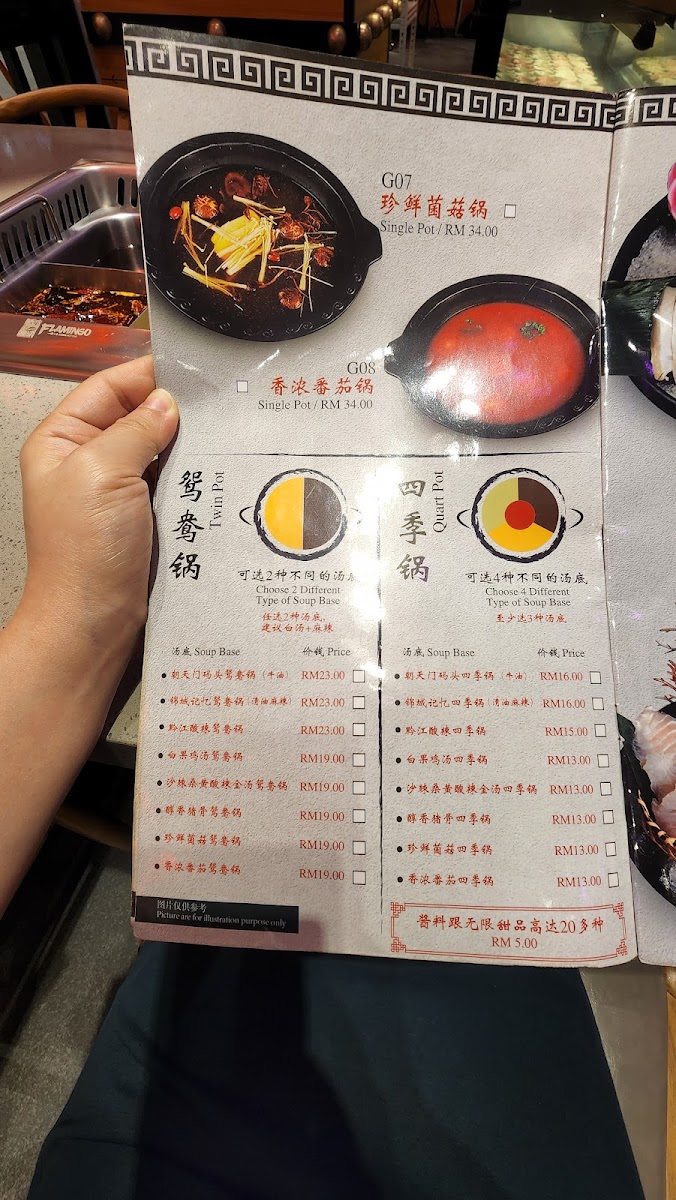 G07
珍鲜菌菇锅
Single Pot / RM 34.00
G08
香浓番茄锅
Single Pot / RM 34.00
FLAMINGO
鸳鸯锅
Twin Pot
可选2种不同的汤底
Choose 2 Different
Type of Soup Base
任选2种汤底,
建议白汤+麻辣
汤底 Soup Base 价钱 Price
朝天门码头鸳鸯锅（牛油） RM23.00
锦城记忆鸳鸯锅(清油麻辣) RM23.00
黔江酸辣鸳鸯锅 RM23:00
白果鸡汤鸳鸯锅 RM19.00
沙棘桑黄酸辣金汤鸳鸯锅 RM19.00
醇香猪骨鸳鸯锅 RM19.00
珍鲜菌菇鸳鸯锅 RM19.00
香浓番茄鸳鸯锅 RM19.00
图片仅供参考
Picture are for illustration purpose only
四季锅
Quart Pot
可选4种不同的汤底
Choose 4 Different
Type of Soup Base
至少选3种汤底
汤底 Soup Base 价钱 Price
朝天门码头四季锅（牛油） RM16.00
锦城记忆四季锅(清油麻辣) RM16.00
黔江酸辣四季锅 RM15.00
白果鸡汤四季锅 RM13.00
沙棘桑黄酸辣金汤四季锅 RM13.00
醇香猪骨四季锅 RM13.00
珍鲜菌菇四季锅 RM13.00
香浓番茄四季锅 RM13.00
酱料跟无限甜品高达20多种
RM 5.00